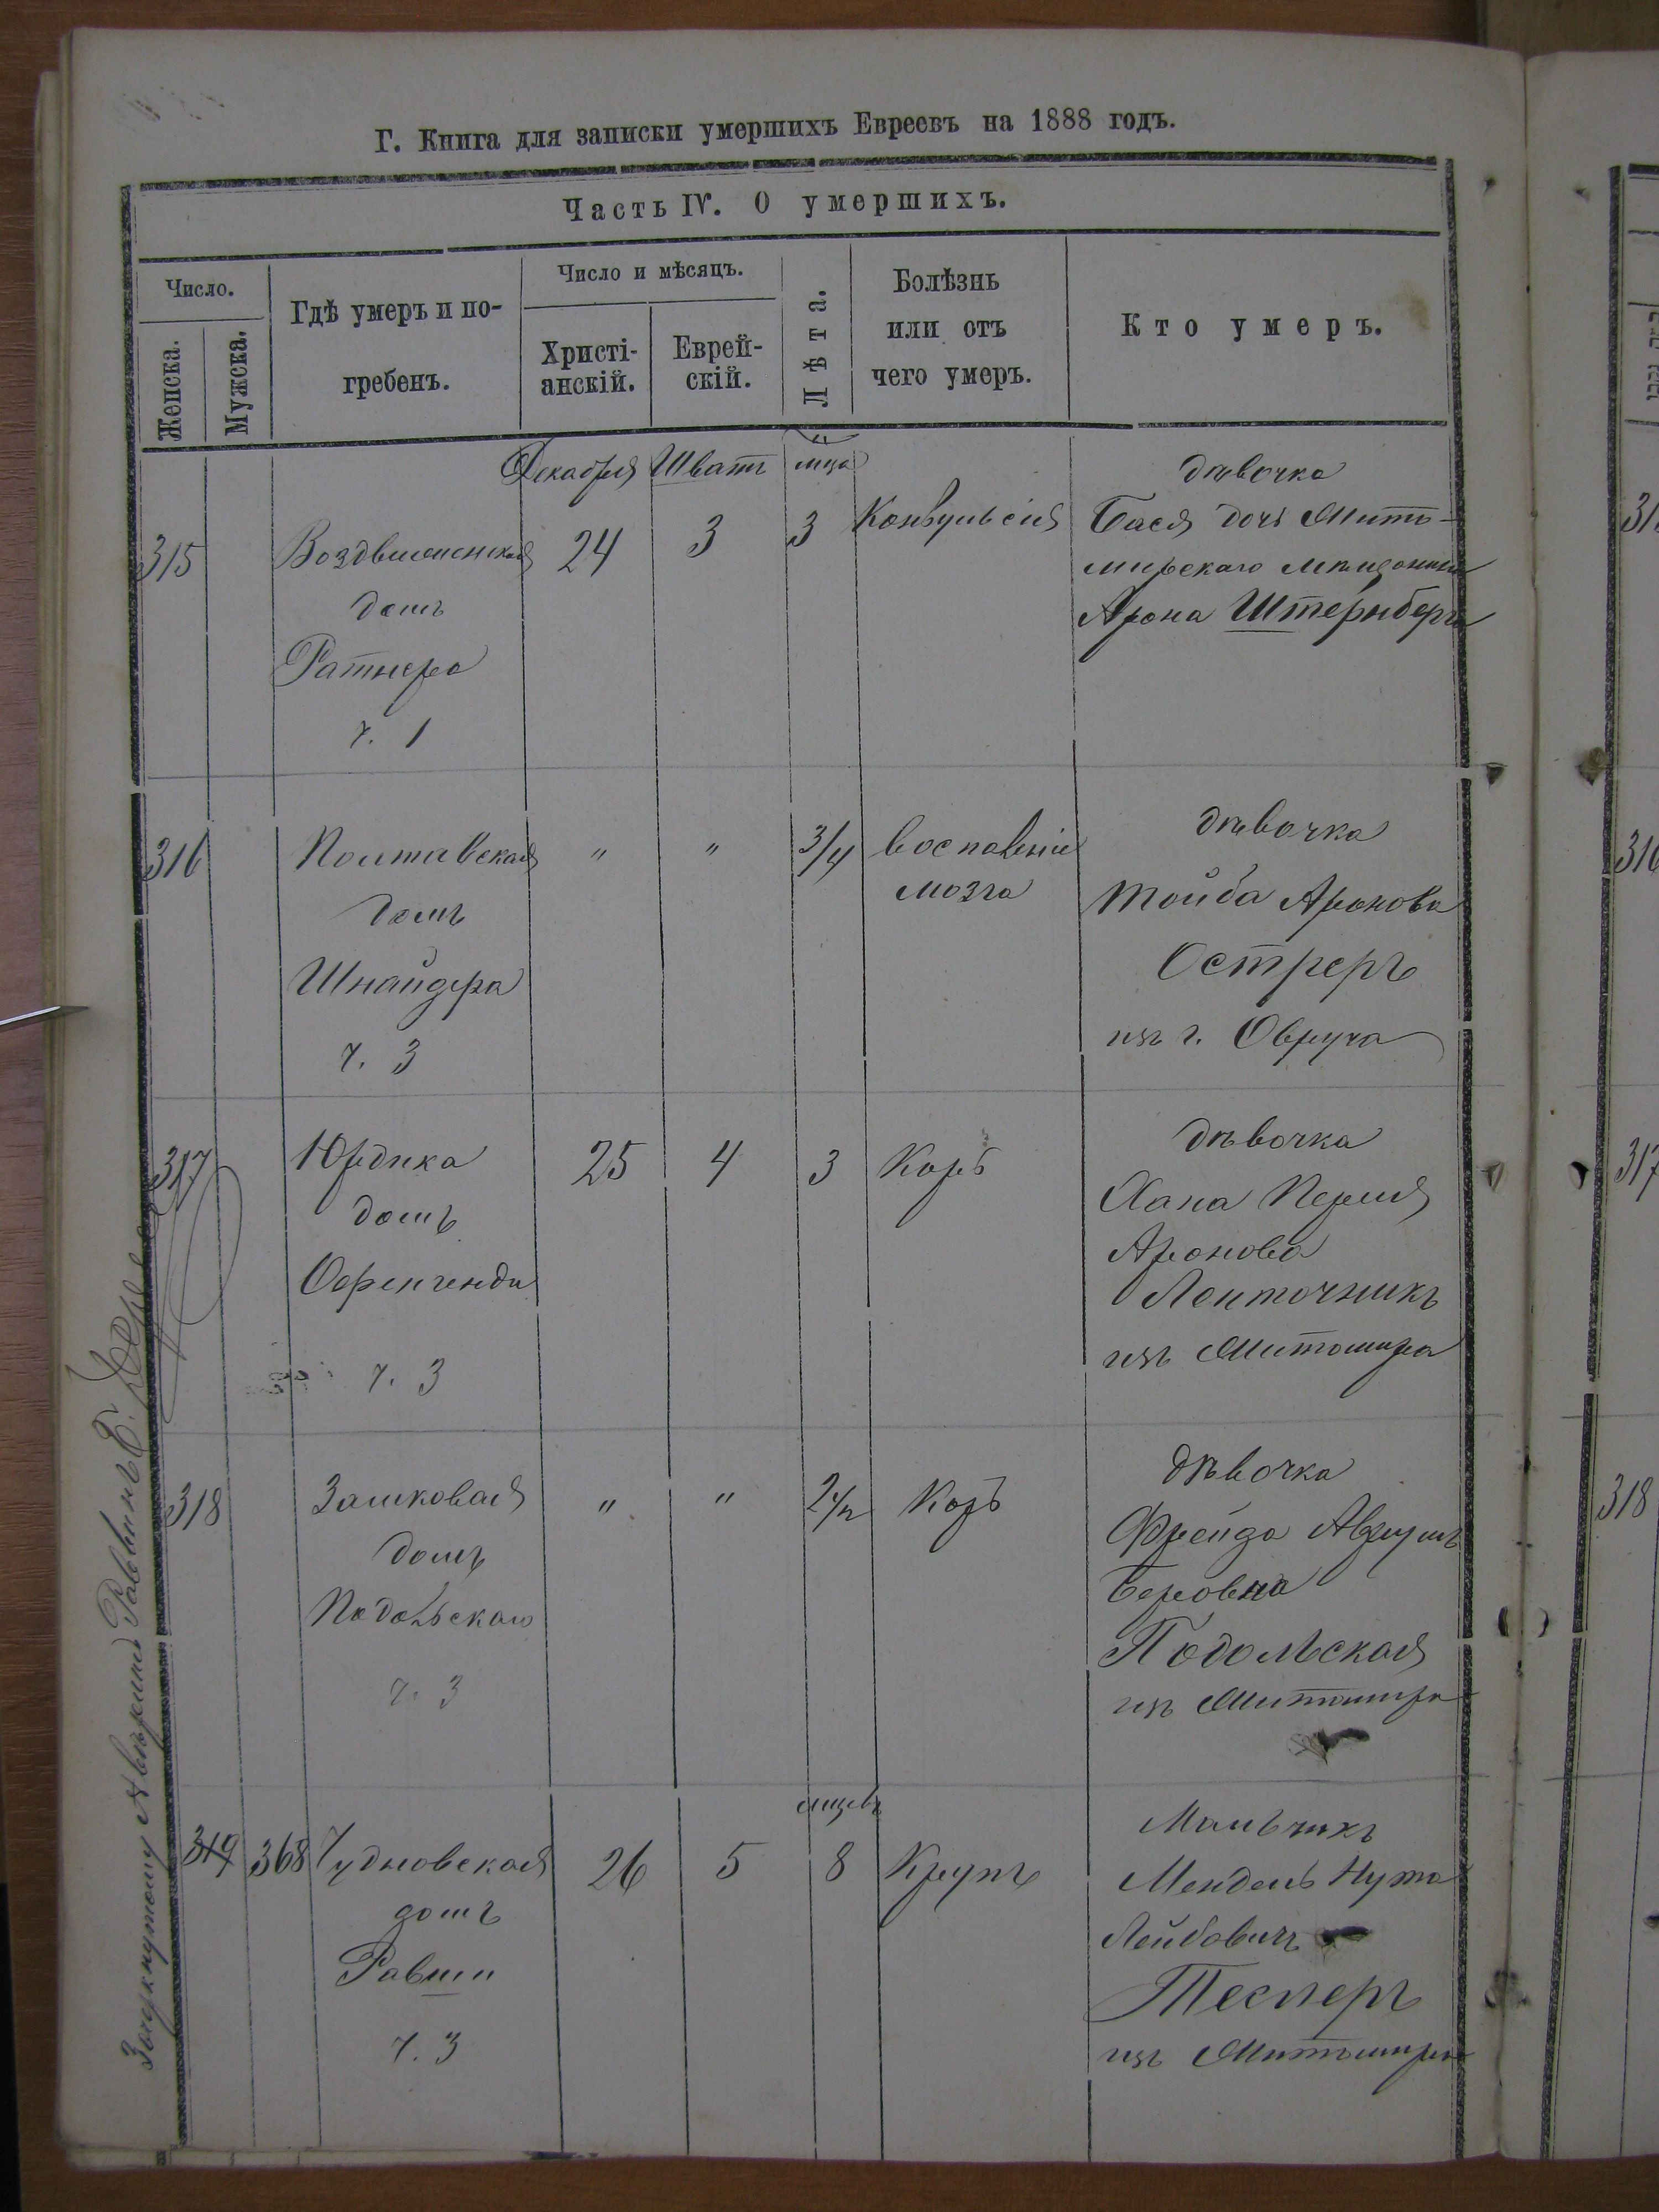 Г. Книга для записки умершихъ Евреевъ на 1888 годъ.
Часть IV. О умершихъ.
Число.
Женска.
Мужска.
Гдѣ умеръ и по-
гребенъ.
Число и мѣсяцъ.
Христі-
анскій.
Еврей-
скій.
Лѣта.
Болѣзнь
или отъ
чего умеръ.
Кто умеръ.
Декабря Шватъ
315
Воздвиженская
домъ
Ратнера
ч. 1
24
3
3
Конвульсія
дѣвочка
Бася дочь Жито-
мирскаго мѣщанина
Арона Штернберга
316
Полтавская
домъ
Шнайдера
ч. 3
"
"
3/4
воспаленіе
мозга
дѣвочка
Тойба Аронова
Остреръ
изъ г. Овруча
317
Юрдика
домъ
ч. 3
25
4
3
Корь
дѣвочка
Хана Перля
Аронова
Ленточникъ
изъ Житомира
318
Замковая
домъ
Подольскаго
ч. 3
"
"
2 1/2
Корь
дѣвочка
Фрейда Аврумъ
Беровна
Подольская
изъ Житомира
319
368
Чудновская
домъ
ч. 3
26
5
мцевъ
8
Крупъ
Мальчикъ
Мендель Нута
Лейбовичъ
Теслеръ
изъ Житомира
Зачеркнутому 319 вѣрить Раввинъ
315
316
317
318